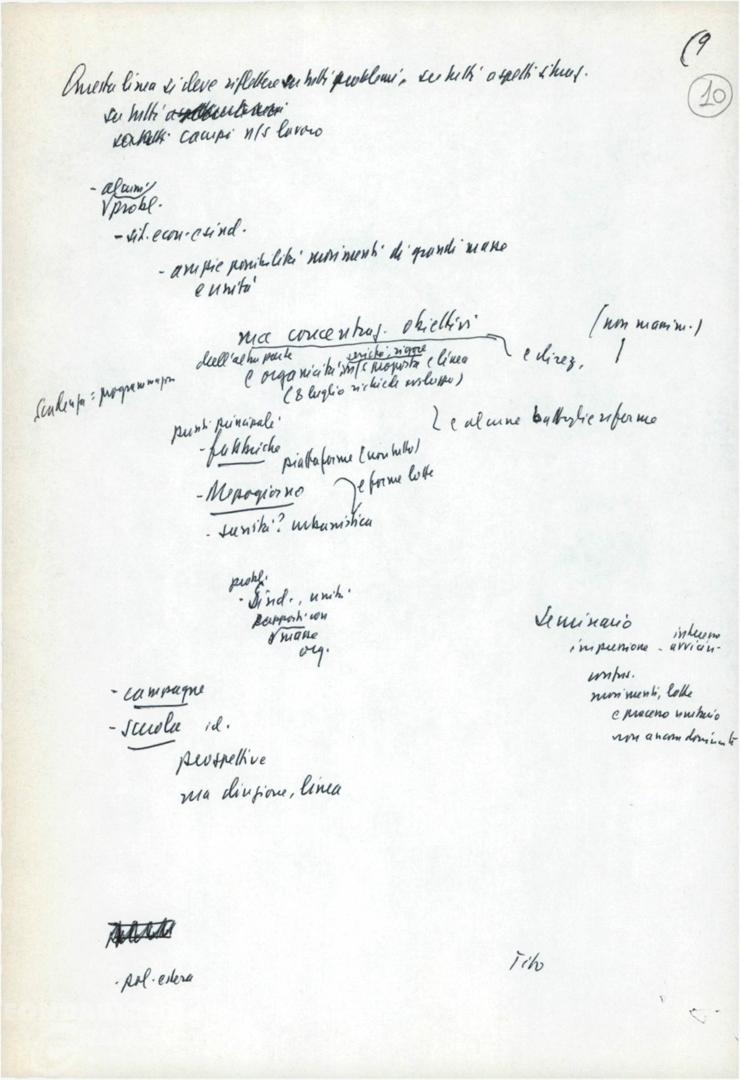 (9
10
Questa linea si deve riflettere su tutti problemi, su tutti aspetti situaz.
su tutti
su tutti campi n/s lavoro
- alcuni
probl.
- sit. econ. e sind.
- ampie possibilità movimenti di grandi masse
e unità
ma concentraz. obiettivi
(non massim.)
dall'altra parte
e direz.
e organicità n/s proposta e linea
(8 luglio richiede sviluppo)
Scadenza = programmazione
punti principali
e alcune battaglie riforme
- fabbriche
piattaforme (non tutto)
- Mezzogiorno
e forme lotte
- sanità? urbanistica
probl.
- Sind., unità
rapporti con
masse
org.
Seminario
impressione -
movimenti, lotte
e processo unitario
non ancora dominante
- campagne
- scuola id.
prospettive
ma direzione, linea
- pol. estera
Tito